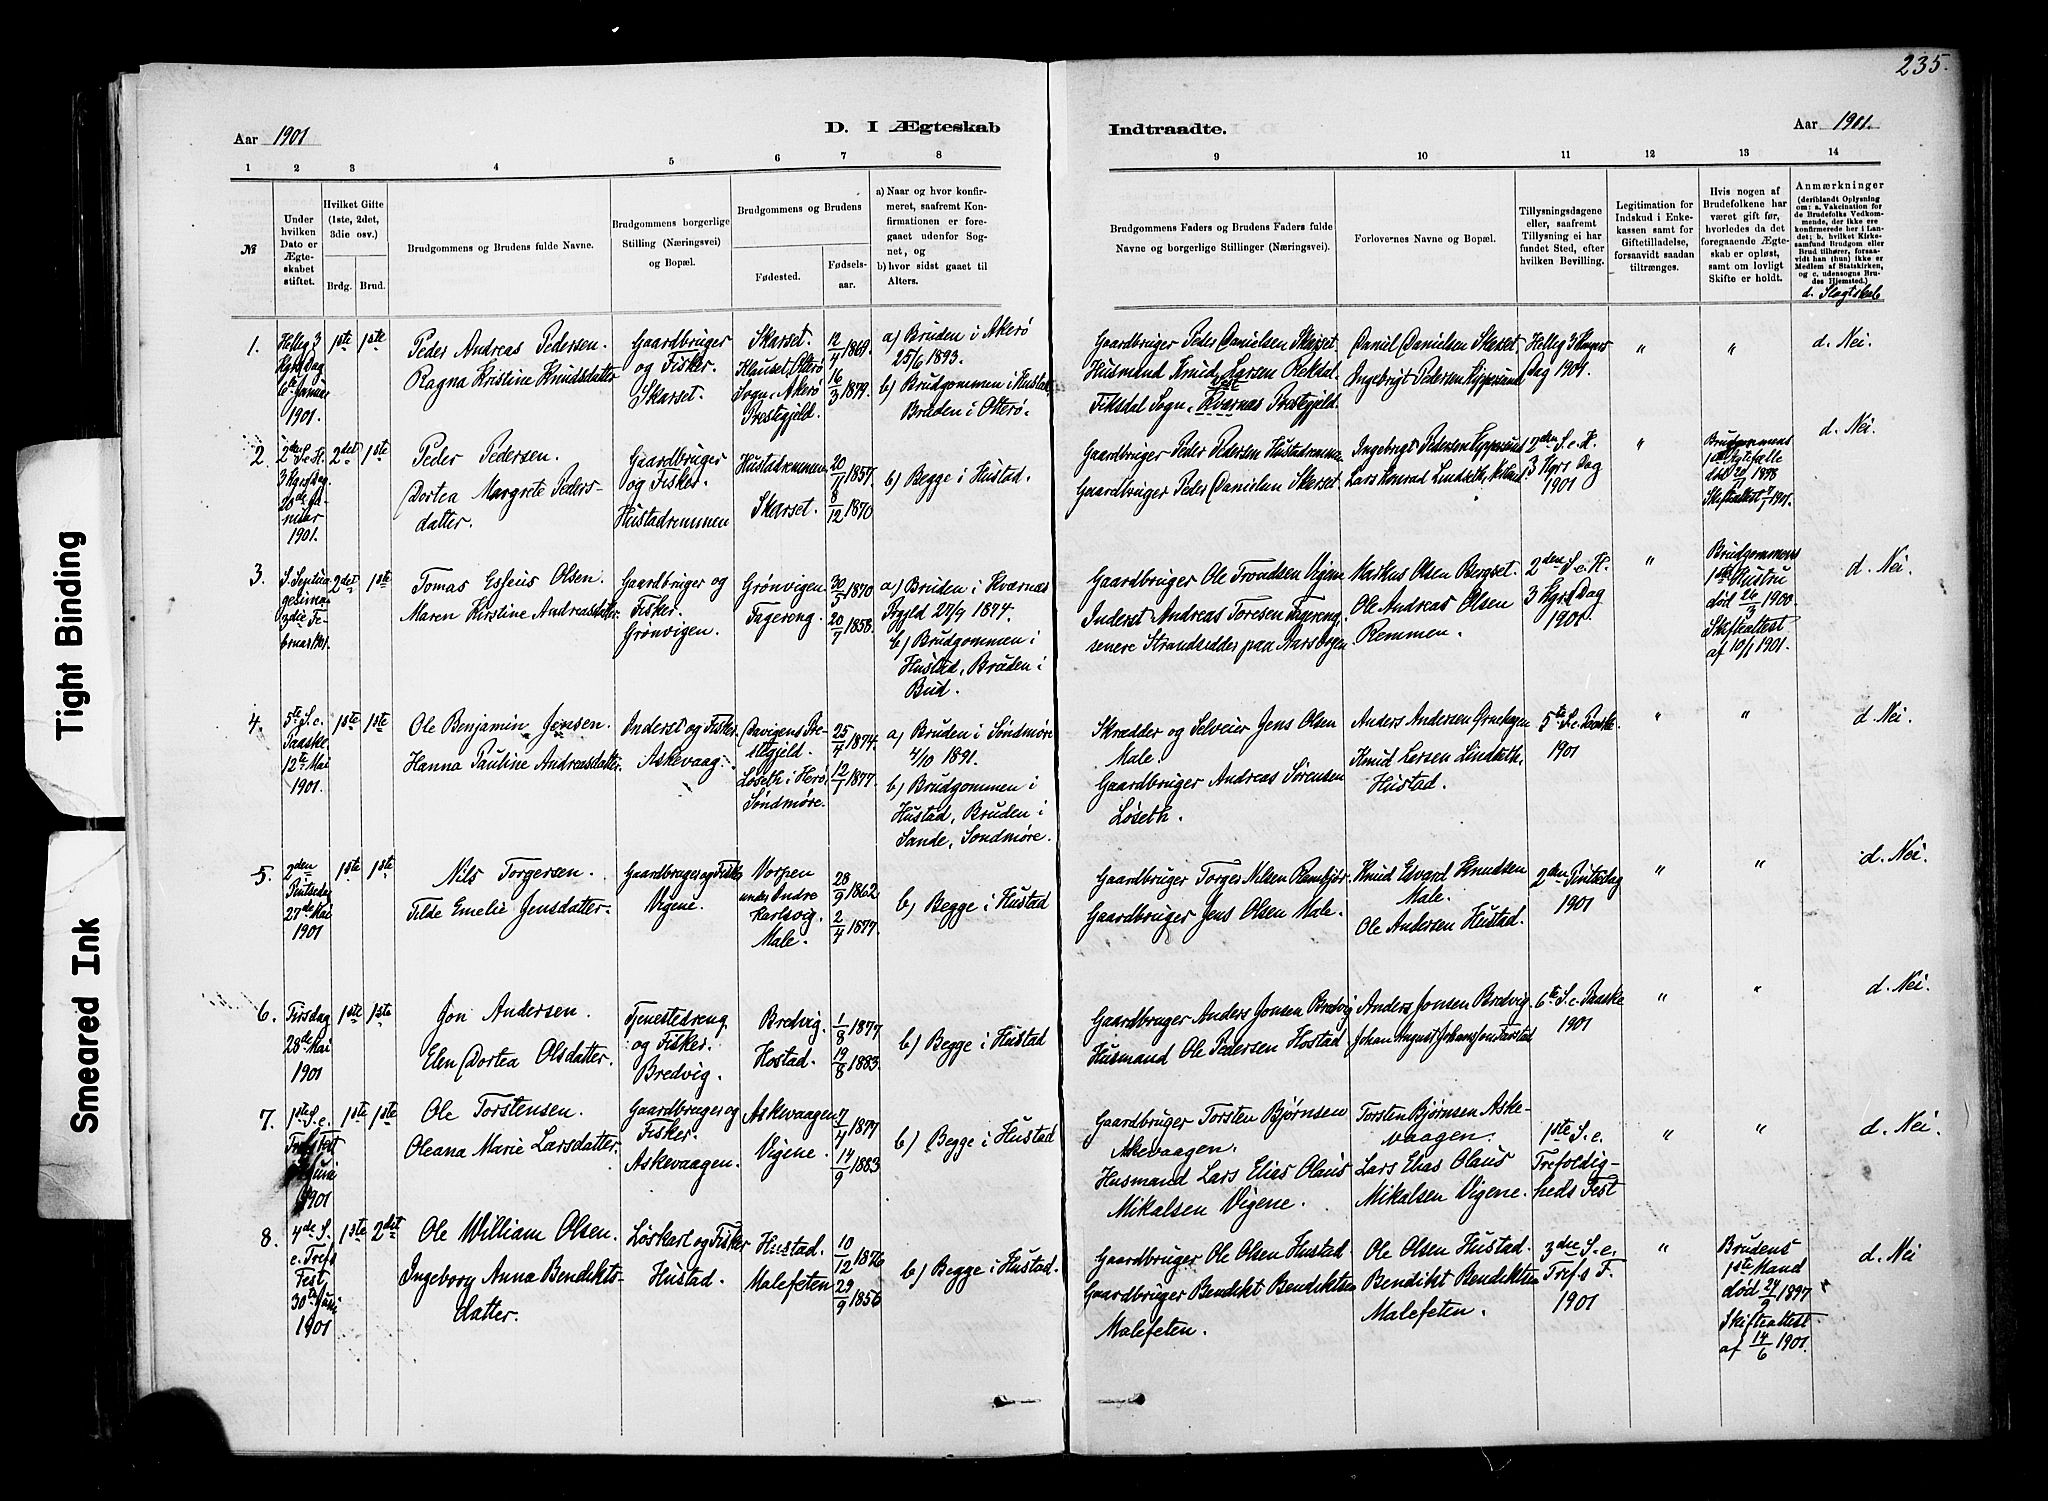 235.
Aar 1901
D. I Ægteskab
Indtraadte.
Aar 1901.
1 2 3 4 5 6 7 8
9 10 11 12 13 14
№
Under hvilken Dato er Ægteskabet stiftet.
Hvilket Gifte (1ste, 2det, 3die osv.)
Brdg. Brud.
Brudgommens og Brudens fulde Navne.
Brudgommens borgerlige Stilling (Næringsvei) og Bopæl.
Brudgommens og Brudens
Fødested.
Fødselsaar.
a) Naar og hvor konfirmeret, saafremt Konfirmationen er foregaaet udenfor Sognet, og
b) hvor sidst gaaet til Alters.
Brudgommens Faders og Brudens Faders fulde Navne og borgerlige Stillinger (Næringsvei).
Forlovernes Navne og Bopæl.
Tillysningsdagene eller, saafremt Tillysning ei har fundet Sted, efter hvilken Bevilling.
Legitimation for Indskud i Enkekassen samt for Giftetilladelse, forsaavidt saadan tiltrænges.
Hvis nogen af Brudefolkene har været gift før, hvorledes da det foregaaende Ægteskab er opløst, samt om lovligt Skifte er holdt.
Anmærkninger
(deriblandt Oplysning om: a. Vakcination for de Brudefolks Vedkommende, der ikke ere konfirmerede her i Landet; b. hvilket Kirkesamfund Brudgom eller Brud tilhører, forsaavidt han (hun) ikke er Medlem af Statskirken, og c. udensogns Brudes Hjemsted.)
d. Slagtskab
1.
Helleg 3 Kgrs Dag 6te Januar 1901.
1ste 1ste
Peder Andreas Pedersen.
Ragna Kristine Knudsdatter
Gaardbruger og Fisker. Skarset.
Skarset.
Klauset, Otterø Sogn, Akerø Prestegjeld.
12/4 1869.
16/3 1879.
a) Bruden i Akerø 25/6 1893.
b) Brudgommen i Hustad, Bruden i Otterø.
Gaardbruger Peder Danielsen Skarset.
Husmand Knud Larsen Rekdal.
Fiksdal Sogn, Prestegjeld.
Daniel Danielsen Skarset.
Ingebrigt Pedersen
Helleg 3 Kongers Dag 1901.
"
"
d. Nei.
2.
2den S. e. H. 3 Kgrs Dag 20de Januar 1901.
2det 1ste
Peder Pedersen.
Dortea Margrete Pedersdatter.
Gaardbruger og Fisker. Hustadremmen
Hustadremmen
Skarset.
1857.
8/12 1870
b) Begge i Hustad.
Gaardbruger Peder Pedersen Hustadremmen
Gaardbruger Peder Danielsen Skarset.
Ingebrigt Pedersen
Lars Konrad Lindseth,
2den S. e. H. 3 Kgrs Dag 1901
"
Brudgommens 1ste Ægtefælle død 1898
Skifteattest 1901.
d. Nei.
3.
S. Septuagesima 3die Februar 1901.
2det 1ste
Tomas Esseus Olsen.
Maren Kirstine Andreasdatter.
Gaardbruger og Fisker. Grønvigen.
Grønvigen
Fagereng.
30/3 1870
20/7 1858.
a) Bruden i Kvernæs Prgjld 27/9 1874.
b) Brudgommen i Hustad, Bruden i Bud.
Gaardbruger Ole Trondsen Vigen
Inderst Andreas Toresen Fagereng, senere Strandsidder paa
Markus Olsen Bergset.
Ole Andreas Olsen Remmen.
2den S. e. H. 3 Kgrs Dag 1901
"
Brudgommens 1ste Hustru død 26/3 1900.
Skifteattest af 10/1 1901.
d. Nei.
4.
5te S. e. Paaske. 12te Mai 1901.
1ste 1ste
Ole Benjamin Jensen.
Hanna Pauline Andreasdatter.
Inderst og Fisker. Askevaag.
Davigens Prestegjeld.
Løseth i Herø, Søndmøre.
25/4 1874.
12/1 1877.
a) Bruden i Søndmøre 4/10 1891.
b) Brudgommen i Hustad, Bruden i Sande, Søndmøre.
Skrædder og Selveier Jens Olsen Male.
Gaardbruger Andreas Sørensen Løseth.
Anders Andersen
Knud Larsen Lindseth, Hustad.
5te S. e. Paaske 1901
"
"
d. Nei.
5.
2den Pintsedag 27de Mai 1901
1ste 1ste
Nils Torgersen.
Tilde Emelie Jensdatter.
Gaardbruger og Fisker Vigene.
Vorpen under Indre Karlsvig.
Male.
28/9 1862
2/4 1877.
b) Begge i Hustad
Gaardbruger Torger Nilsen
Gaardbruger Jens Olsen Male.
Knud Edvard Knudsen Male.
Ole Andersen Hustad.
2den Pintsedag 1901
"
"
d. Nei.
6.
Tirsdag 28de Mai 1901
1ste 1ste
Jon Andersen.
Elen Dortea Olsdatter.
Tjenestedreng og Fisker. Bredvig.
Bredvig.
Hostad.
1/8 1877
19/8 1883.
b) Begge i Hustad
Gaardbruger Anders Jonsen Bredvig
Husmand Ole Pedersen Hostad
Anders Jonsen Bredvig.
Johan August Johansson Farstad
6te S. e. Paaske 1901
"
"
d. Nei.
7.
1ste S. e. Trefs Fest Juni 1901
1ste 1ste
Ole Torstensen.
Oleana Marie Larsdatter.
Gaardbruger og Fisker. Askevaagen.
Askevaagen
Vigene.
7/4 1877
14/9 1883
b) Begge i Hustad
Gaardbruger Torsten Bjørnsen Askevaagen.
Husmand Lars Elias Olaus Mikalsen Vigene.
Torsten Bjørnsen Askevaagen.
Lars Elias Olaus Mikalsen Vigene.
1ste S. e. Trefoldigheds Fest
"
"
d. Nei.
8.
4de S. e. Trefs Fest 30te Juni 1901
1ste 2det
Ole William Olsen.
Ingeborg Anna Bendiktsdatter.
Løskarl og Fisker Hustad.
Hustad.
Malefeten
10/12 1876
29/9 1856
b) Begge i Hustad.
Gaardbruger Ole Olsen Hustad.
Gaardbruger Bendikt Bendiktsen Malefeten.
Ole Olsen Hustad.
Bendikt Bendiktsen Malefeten.
3die S. e. Trefs F. 1901
"
Brudens 1ste Mand død 27/9 1897
Skifteattest af 14/6 1901.
d. Nei
Tight Binding
Smeared Ink